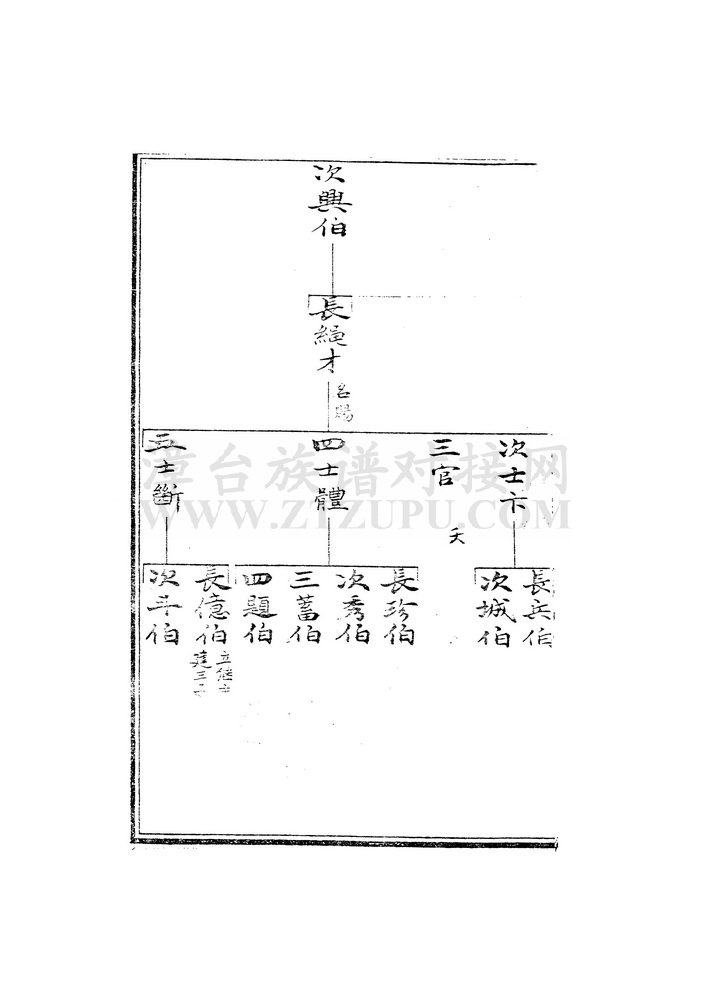 次興伯
長繩才
名賜
次士卞
三官
夭
四士體
五士斷
長兵伯
次城伯
長珍伯
次秀伯
三蓄伯
四題伯
長億伯
次斗伯
漳台族谱对接网
WWW.ZTZUPU.COM